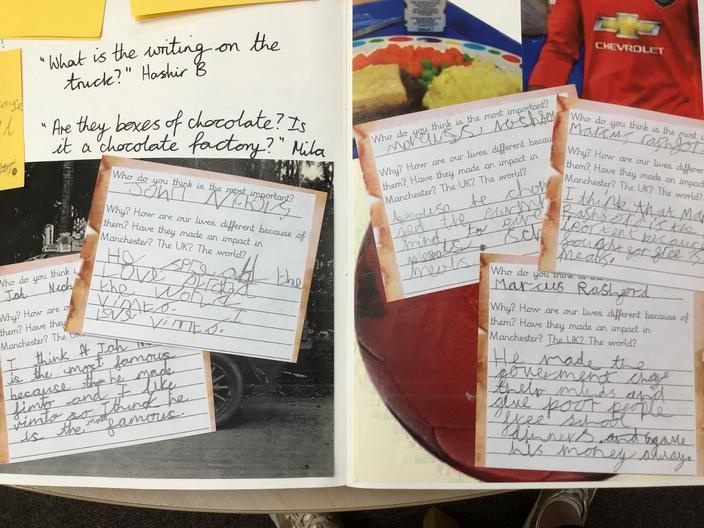 "What is the writing on the
truck?" Hashir B
"Are they boxes of chocolate? Is
it a chocolate factory?" Mila
Who do you think is the most important?
John Nichols
Why? How are our lives different because of
them? Have they made an impact in
Manchester? The UK? The world?
He spread the
love around
the world I
love vimto.
Who do you think is
Joh
Why? How are our
them? Have they
Manchester? The UK?
I think Joh
is the most famous
because he made
fimto and I like
vimto so I think he
is the most famous.
CHEVROLET
Who do you think is the most important?
Why? How are our lives different because
them? Have they made an impact in
Manchester? The UK? The world?
because he
mind to
meals
meals
Who do you think is the most
Marcus
Why? How are our lives different
them? Have they made an impact
Manchester? The UK? The world?
I think that
is the
because
fought for free
meals.
Who do you think is the most important?
Marcus Rashford
Why? How are our lives different because of
them? Have they made an impact in
Manchester? The UK? The world?
He made the
goverment
their minds and
give poor people
free
dinners and gave
his money away.